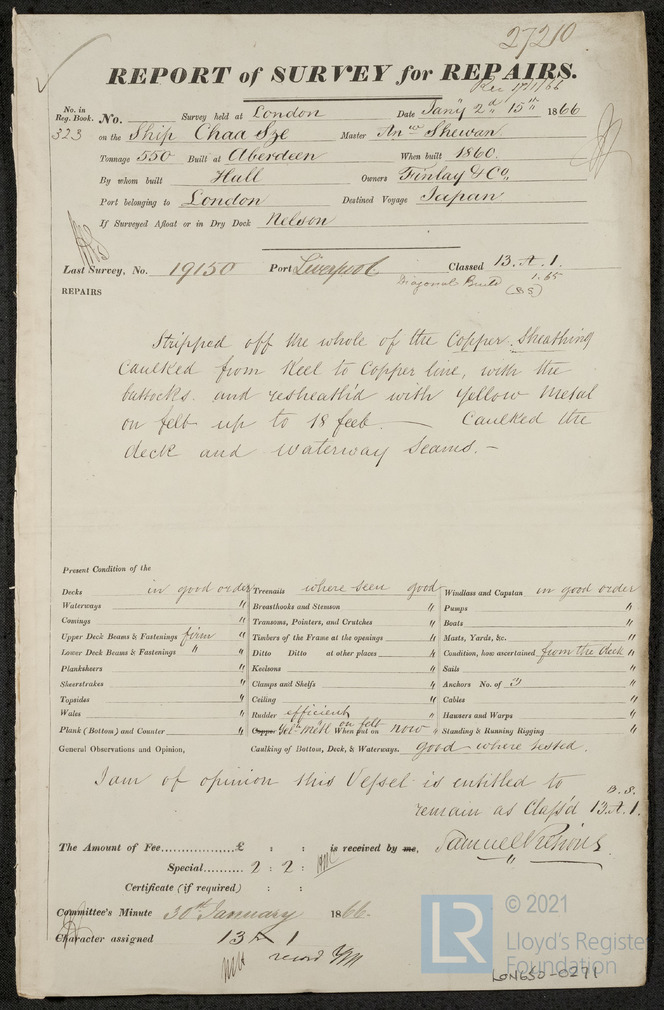 27210
REPORT of SURVEY for REPAIRS.
Rec 17/1/66
No. in Reg. Book. No. Survey held at London Date Jan'y 2d 15th 1866
323 on the Ship Chaa Sze Master Anw Shewan
Tonnage 550 Built at Aberdeen When built 1860.
By whom built Hall Owners Finlay & Co.
Port belonging to London Destined Voyage Japan
If Surveyed Afloat or in Dry Dock Nelson
Last Survey, No. 19150 Port Liverpool Classed 13.A.1.
1.65
Diagonal Built (B S)
REPAIRS
Stripped off the whole of the Copper Sheathing
Caulked from Keel to Copper line, with the
buttocks and resheath'd with Yellow Metal
on felt up to 18 feet. — Caulked the
deck and Waterway Seams. —
Present Condition of the
Decks in good order Treenails where seen good Windlass and Capstan in good order
Waterways " Breasthooks and Stemson " Pumps "
Comings " Transoms, Pointers, and Crutches " Boats "
Upper Deck Beams & Fastenings firm " Timbers of the Frame at the openings " Masts, Yards, &c. "
Lower Deck Beams & Fastenings " " Ditto Ditto at other places " Condition, how ascertained from the deck "
Planksheers " Keelsons " Sails "
Sheerstrakes " Clamps and Shelfs " Anchors No. of 3 "
Topsides " Ceiling " Cables "
Wales " Rudder efficient Hawsers and Warps "
Plank (Bottom) and Counter " Copper Yel. Metl on felt When put on now " Standing & Running Rigging "
General Observations and Opinion, Caulking of Bottom, Deck, & Waterways. good where tested.
I am of opinion this Vessel is entitled to
B.S.
remain as Class'd 13.A.1.
The Amount of Fee £ : : is received by me,
Special 2 : 2 :
Certificate (if required) : :
Committee's Minute 30th January 1866.
Character assigned 13 A 1
record
© 2021
LR
Lloyd's Register
Foundation
LON650-0271